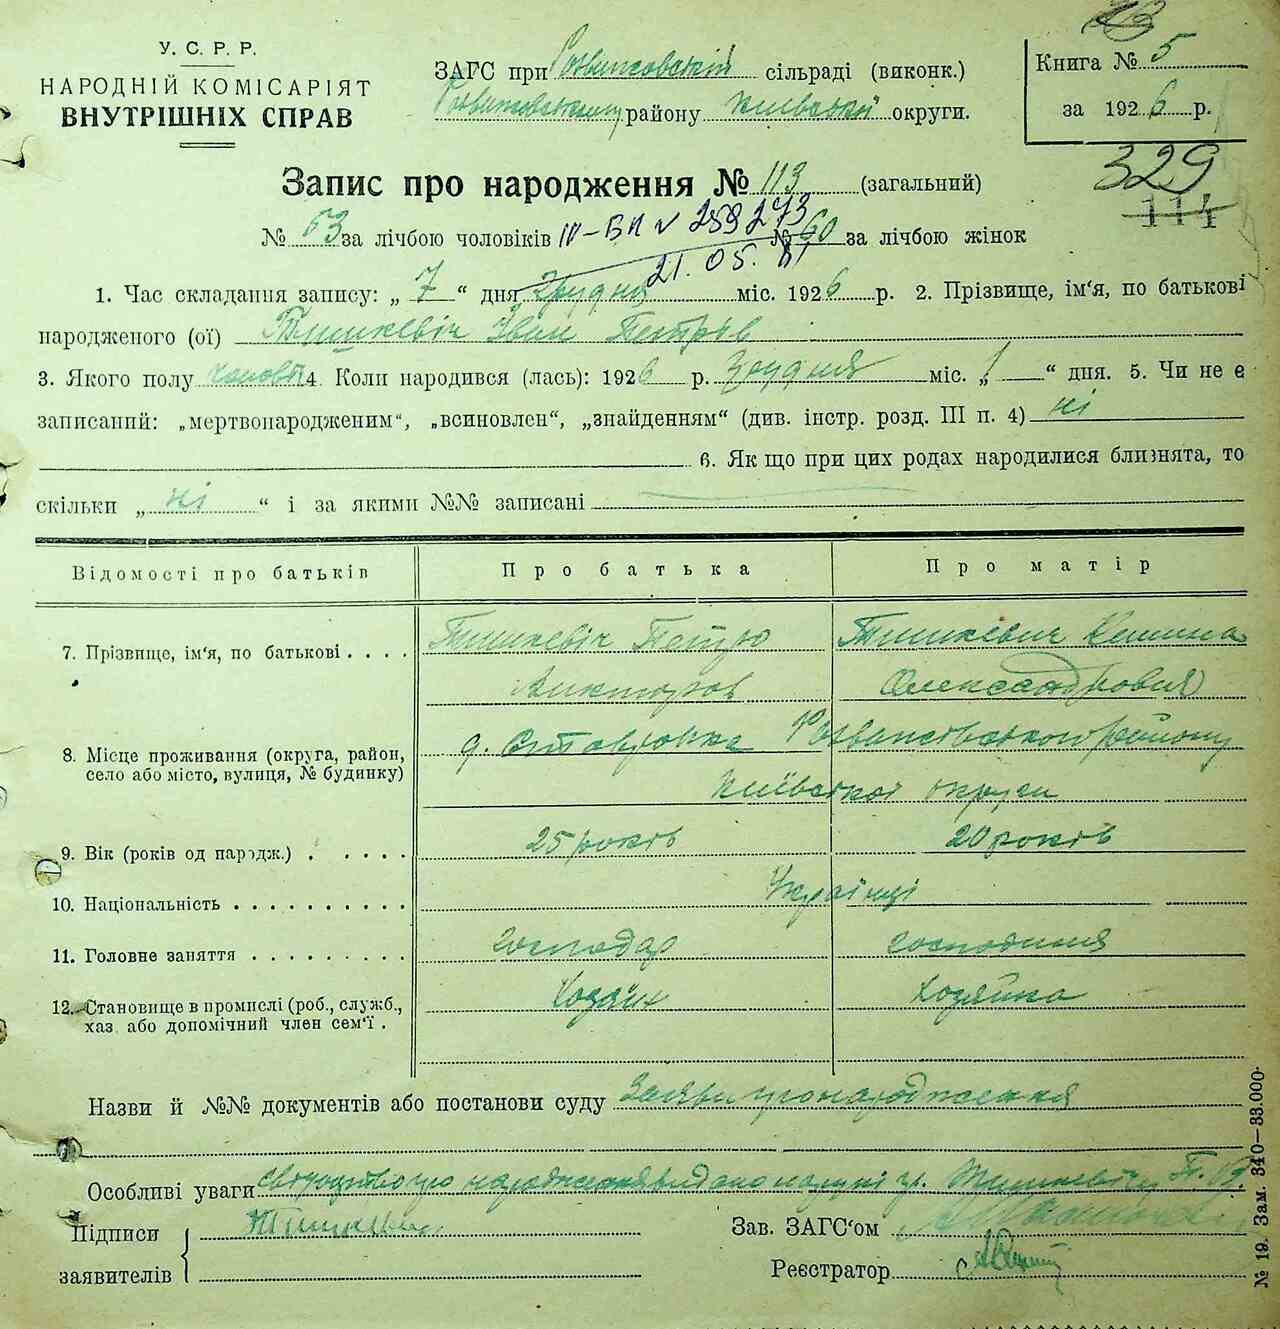 У. С. Р. Р.
НАРОДНІЙ КОМІСАРІЯТ
ВНУТРІШНІХ СПРАВ
ЗАГС при сільраді (виконк.)
району Київської округи.
Книга № 5
за 1926 р.
Запис про народження № 113 (загальний)
329
114
№ 53 за лічбою чоловіків IV-БК № 259273 № 60 за лічбою жінок
21.05.81
1. Час складання запису: „ 7 “ дня Грудня міс. 1926 р. 2. Прізвище, ім'я, по батькові
народженого (ої) Тишкевіч Іван Петрів
3. Якого полу чолов. 4. Коли народився (лась): 1926 р. Грудня міс. „ 1 “ дня. 5. Чи не є
записаний: „мертвонародженим“, „всиновлен“, „знайденням“ (див. інстр. розд. III п. 4) ні
6. Як що при цих родах народилися близнята, то
скільки „ ні “ і за якими №№ записані
Відомості про батьків Про батька Про матір
7. Прізвище, ім'я, по батькові . . . . Тишкевіч Петро Тишкевич
Олександровна
8. Місце проживання (округа, район,
село або місто, вулиця, № будинку)
району
Київської округи
9. Вік (років од народж.) . . . . . 25 років 20 років
10. Національність . . . . . . . . . . Українці
11. Головне заняття . . . . . . . . . господар господиня
12. Становище в промислі (роб., служб., Хазяїн Хозяйка
хаз. або допомічний член сем'ї .
Назви й №№ документів або постанови суду Заява про народження
Особливі уваги свідоцтво про народження видано на руки гр. Тишкевічу П. В.
Підписи Тишкевич Зав. ЗАГС'ом
заявителів Реєстратор
№ 19. Зам. 340—33.000-